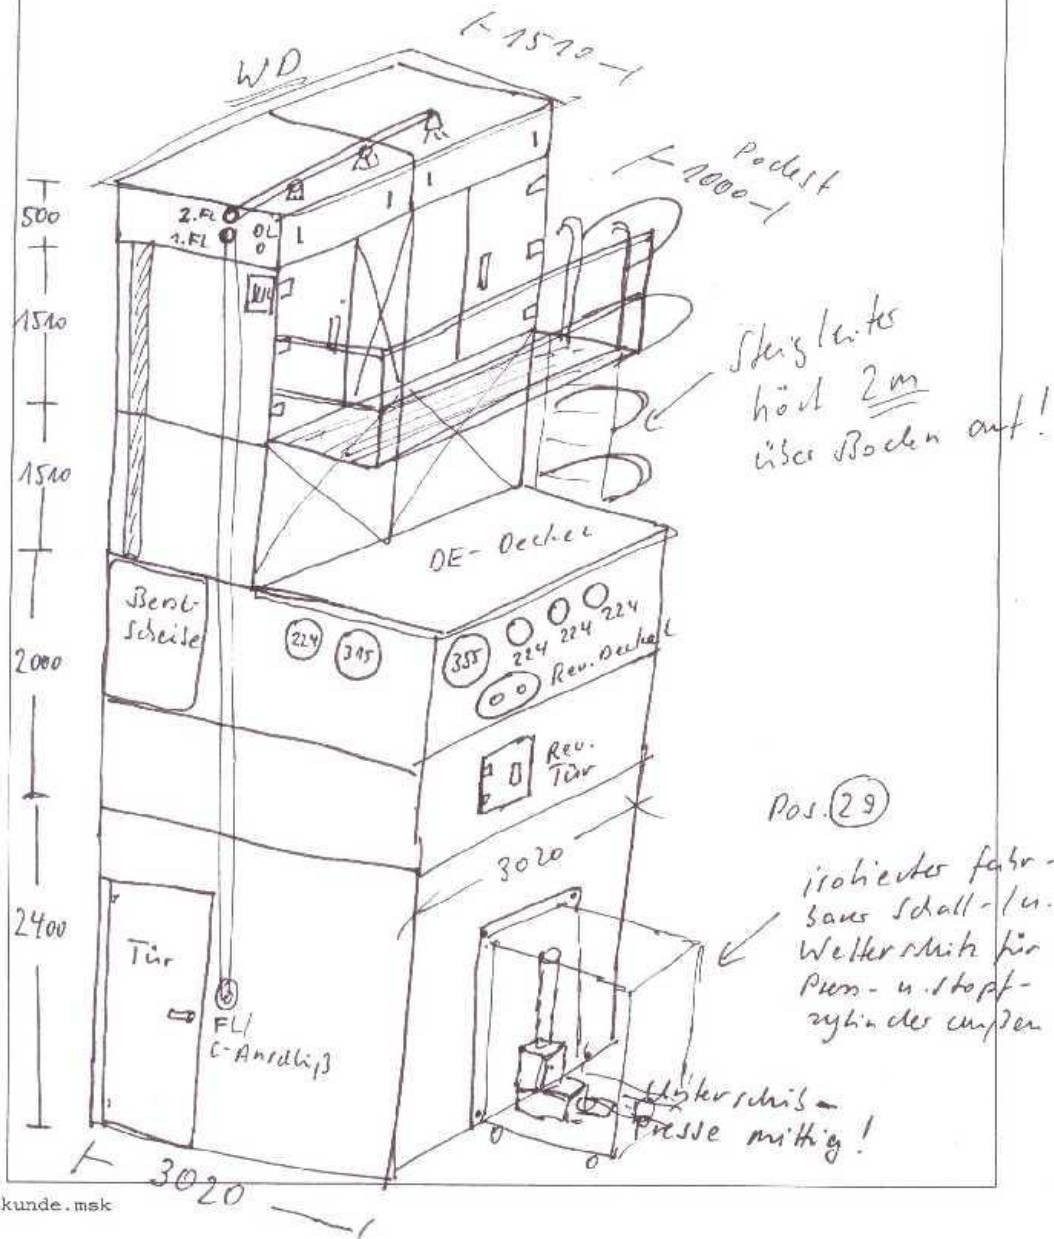 1510
WD
Podest
1000
500
2.FL
1.FL
1510
Steigleiter
hört 2m
über Boden auf!
1510
DE-Decker
Berst-
scheibe
224
315
355
224
224
224
Rev. Deckel
2000
Rev.
Tür
Pos. 29
3020
isolierter fahr-
barer Schall- /u.
Wetterschutz für
Press- u. Stopf-
zylinder außen
2400
Tür
FL/
C-Anschluß
Unterschub-
presse mittig!
3020
kunde.msk